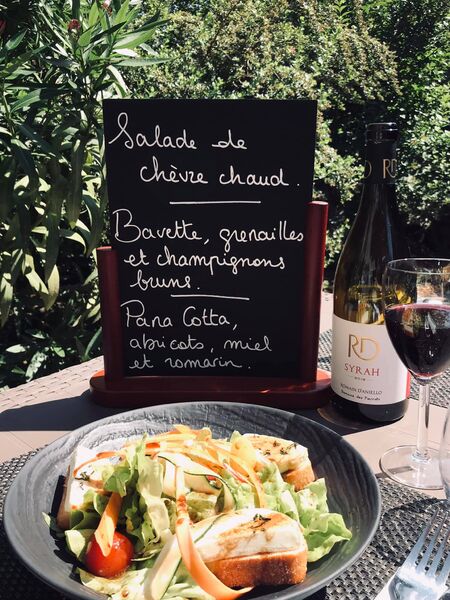 Salade de
chèvre chaud.
Bavette, grenailles
et champignons
bruns.
Pana Cotta,
abricots, miel
et romarin.
RD
RD
SYRAH
ROMAIN D'ANIELLO